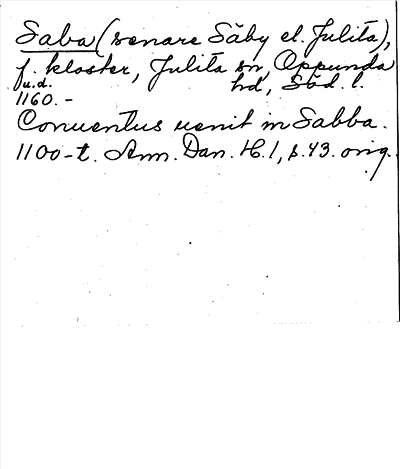 Saba (senare Säby el. Julita),
f. kloster, Julita sn, Oppunda
u.d. hd, Söd. l.
1160. -
Conuentus uenit in Sabba.
1100-t. Ann. Dan. H. 1, s. 43. orig.